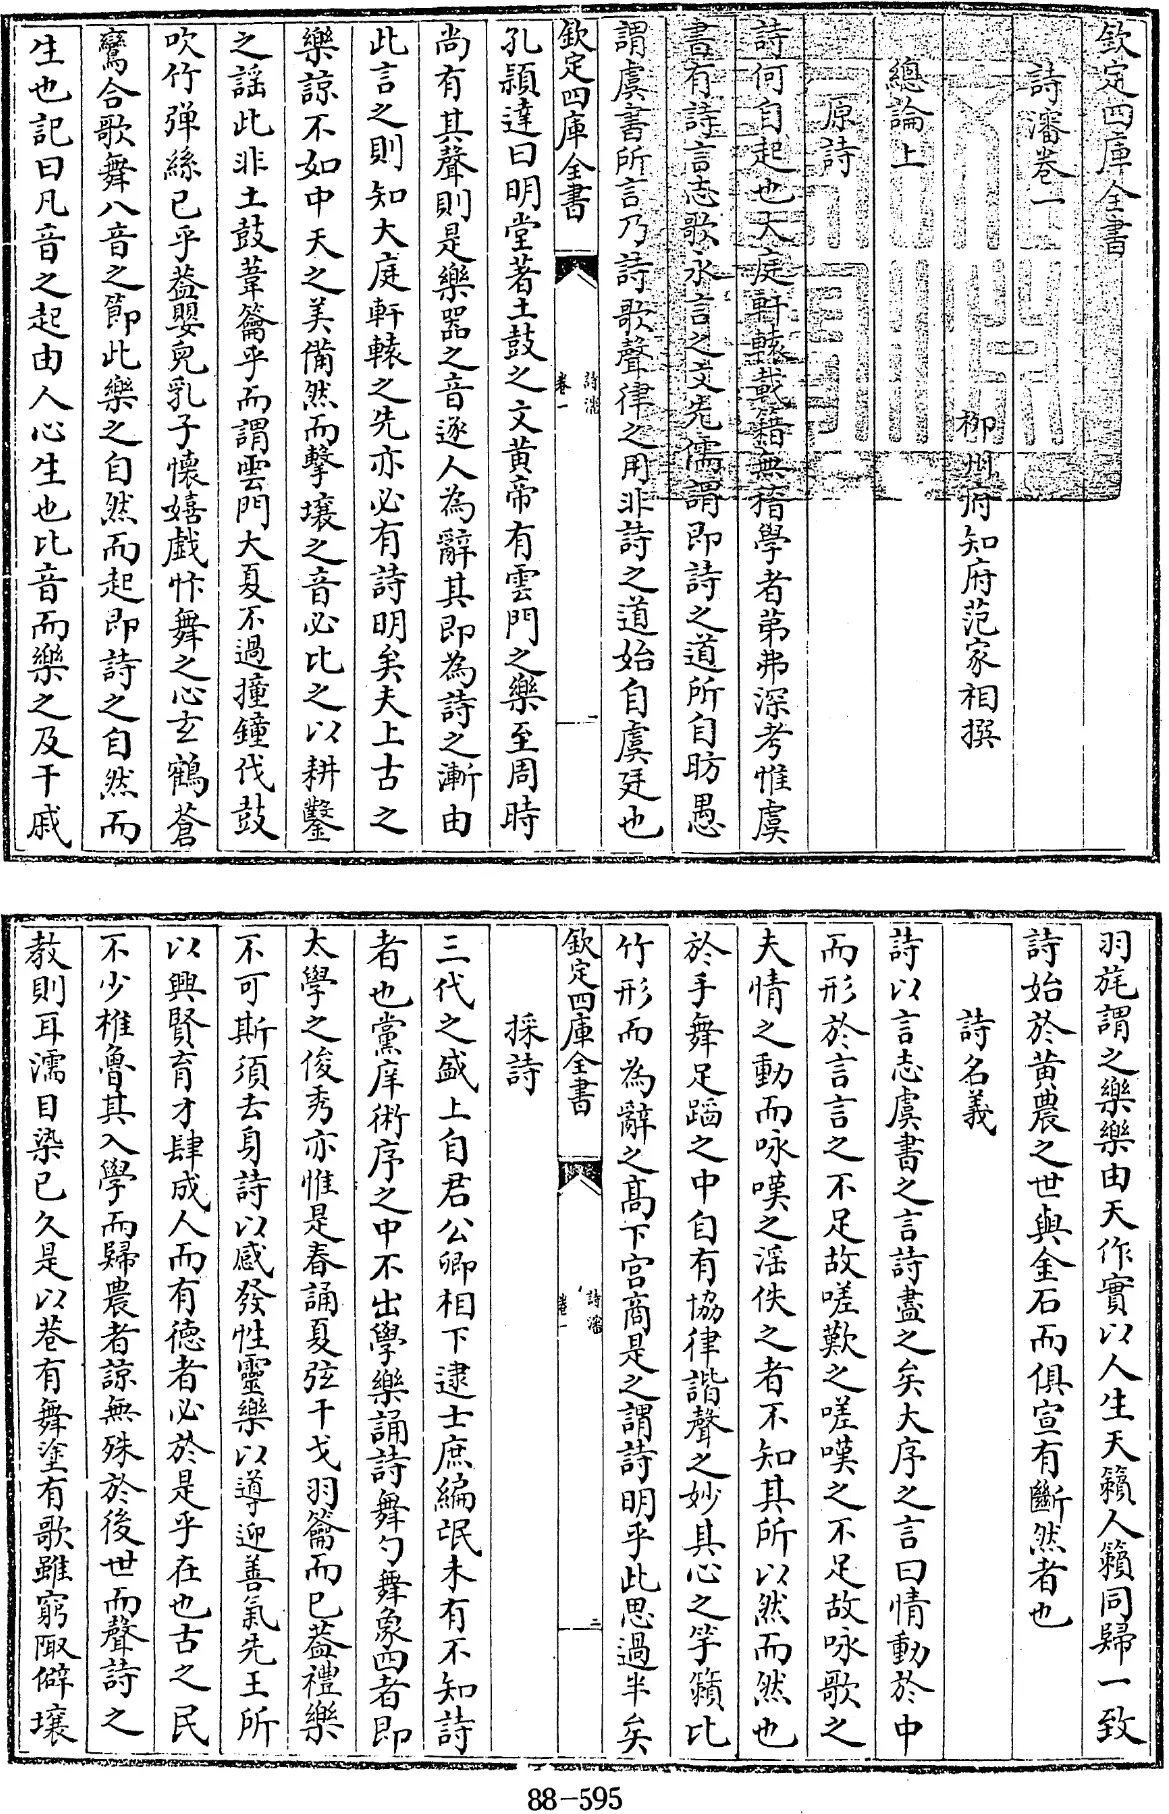 欽定四庫全書
詩瀋卷一
柳州府知府范家相撰
總論上
原詩
詩何自起也大庭軒轅載籍無稽學者第弗深考惟虞
書有詩言志歌永言之文先儒謂即詩之道所自昉愚
謂虞書所言乃詩歌聲律之用非詩之道始自虞廷也
欽定四庫全書
詩瀋
卷一
一
孔穎達曰明堂著土鼓之文黄帝有雲門之樂至周時
尚有其聲則是樂器之音逐人為辭其即為詩之漸由
此言之則知大庭軒轅之先亦必有詩明矣夫上古之
樂諒不如中天之美備然而擊壤之音必比之以耕鑿
之謡此非土鼓葦籥乎而謂雲門大夏不過撞鐘伐鼓
吹竹彈絲已乎葢嬰兒乳子懷嬉戲忭舞之心玄鶴蒼
鸞合歌舞八音之節此樂之自然而起即詩之自然而
生也記曰凡音之起由人心生也比音而樂之及干戚
羽旄謂之樂樂由天作實以人生天籟人籟同歸一致
詩始於黄農之世與金石而俱宣有斷然者也
詩名義
詩以言志虞書之言詩盡之矣大序之言曰情動於中
而形於言言之不足故嗟歎之嗟嘆之不足故咏歌之
夫情之動而咏嘆之滛佚之者不知其所以然而然也
於手舞足蹈之中自有協律諧聲之妙其心之竽籟比
竹形而為辭之高下宫商是之謂詩明乎此思過半矣
欽定四庫全書
詩瀋
卷一
二
採詩
三代之盛上自君公卿相下逮士庶編氓未有不知詩
者也黨庠術序之中不出學樂誦詩舞勺舞象四者即
太學之俊秀亦惟是春誦夏弦干戈羽籥而已葢禮樂
不可斯須去身詩以感發性靈樂以導迎善氣先王所
以興賢育才肆成人而有德者必於是乎在也古之民
不少椎魯其入學而歸農者諒無殊於後世而聲詩之
教則耳濡目染已久是以巷有舞塗有歌雖窮陬僻壤
88-595